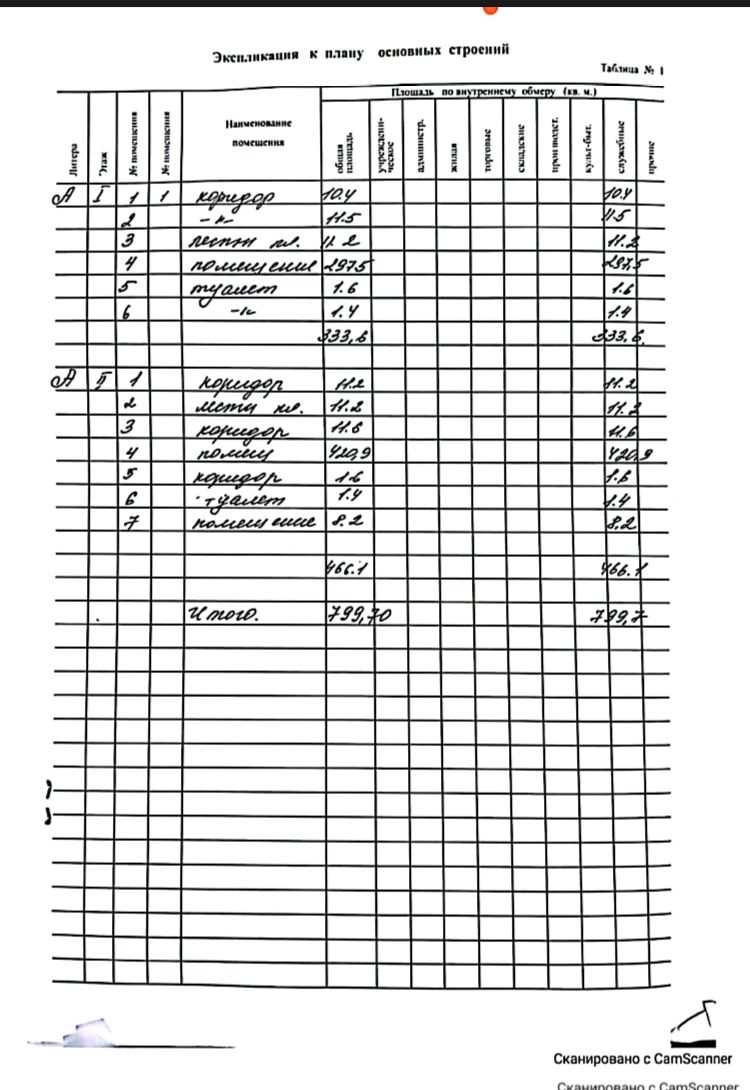 Экспликация к плану основных строений
Таблица № 1
Площадь по внутреннему обмеру (кв. м.)
Литера Этаж № помещения № помещения Наименование помещения общая площадь учреждени-ческое администр. жилая торговые складские производст. культ-быт. служебные прочие
А I 1 1 коридор 10.4 10.4
2 -"- 11.5 11.5
3 лестн кл. 11.2 11.2
4 помещение 297,5 297,5
5 туалет 1.6 1.6
6 -"- 1.4 1.4
333,6 333,6
А II 1 коридор 11.2 11.2
2 лестн кл. 11.2 11.2
3 коридор 11.6 11.6
4 помещ 420,9 420,9
5 коридор 1.6 1.6
6 туалет 1.4 1.4
7 помещение 8.2 8.2
466.1 466.1
Итого. 799,70 799,7
Сканировано с CamScanner
Сканировано с CamScanner